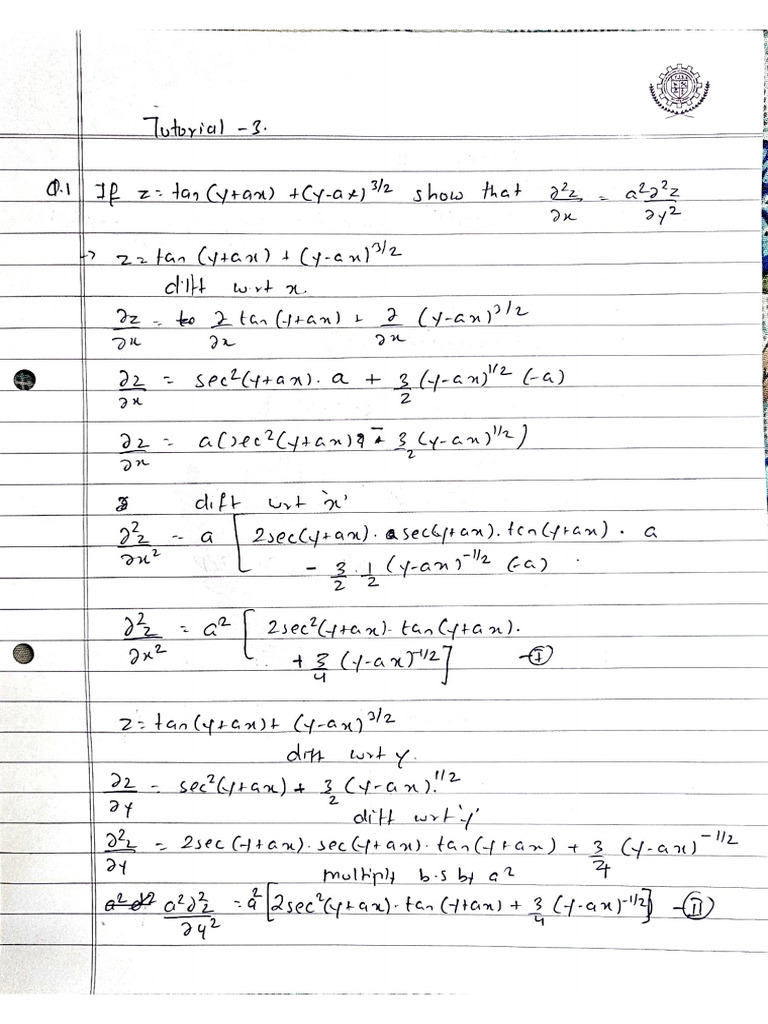 Tutorial - 3.
Q.1 If z = tan(y+ax) + (y-ax)^3/2 show that ∂²z/∂x = a²∂²z/∂y²
→ z = tan(y+ax) + (y-ax)^3/2
diff w.r.t x.
∂z/∂x = ∂/∂x tan(y+ax) + ∂/∂x (y-ax)^3/2
∂z/∂x = sec²(y+ax). a + 3/2 (y-ax)^1/2 (-a)
∂z/∂x = a(sec²(y+ax) - 3/2 (y-ax)^1/2)
diff wrt 'x'
∂²z/∂x² = a [2sec(y+ax). sec(y+ax). tan(y+ax) . a
- 3/2 . 1/2 (y-ax)^-1/2 (-a)
∂²z/∂x² = a² [2sec²(y+ax). tan(y+ax).
+ 3/4 (y-ax)^-1/2] -Ⓘ
z = tan(y+ax) + (y-ax)^3/2
diff wrt y.
∂z/∂y = sec²(y+ax) + 3/2 (y-ax)^1/2
diff wrt 'y'
∂²z/∂y = 2sec(y+ax). sec(y+ax). tan(y+ax) + 3/4 (y-ax)^-1/2
multiply b.s by a²
a²∂²z/∂y² = a² [2sec²(y+ax). tan(y+ax) + 3/4 (y-ax)^-1/2] -(II)